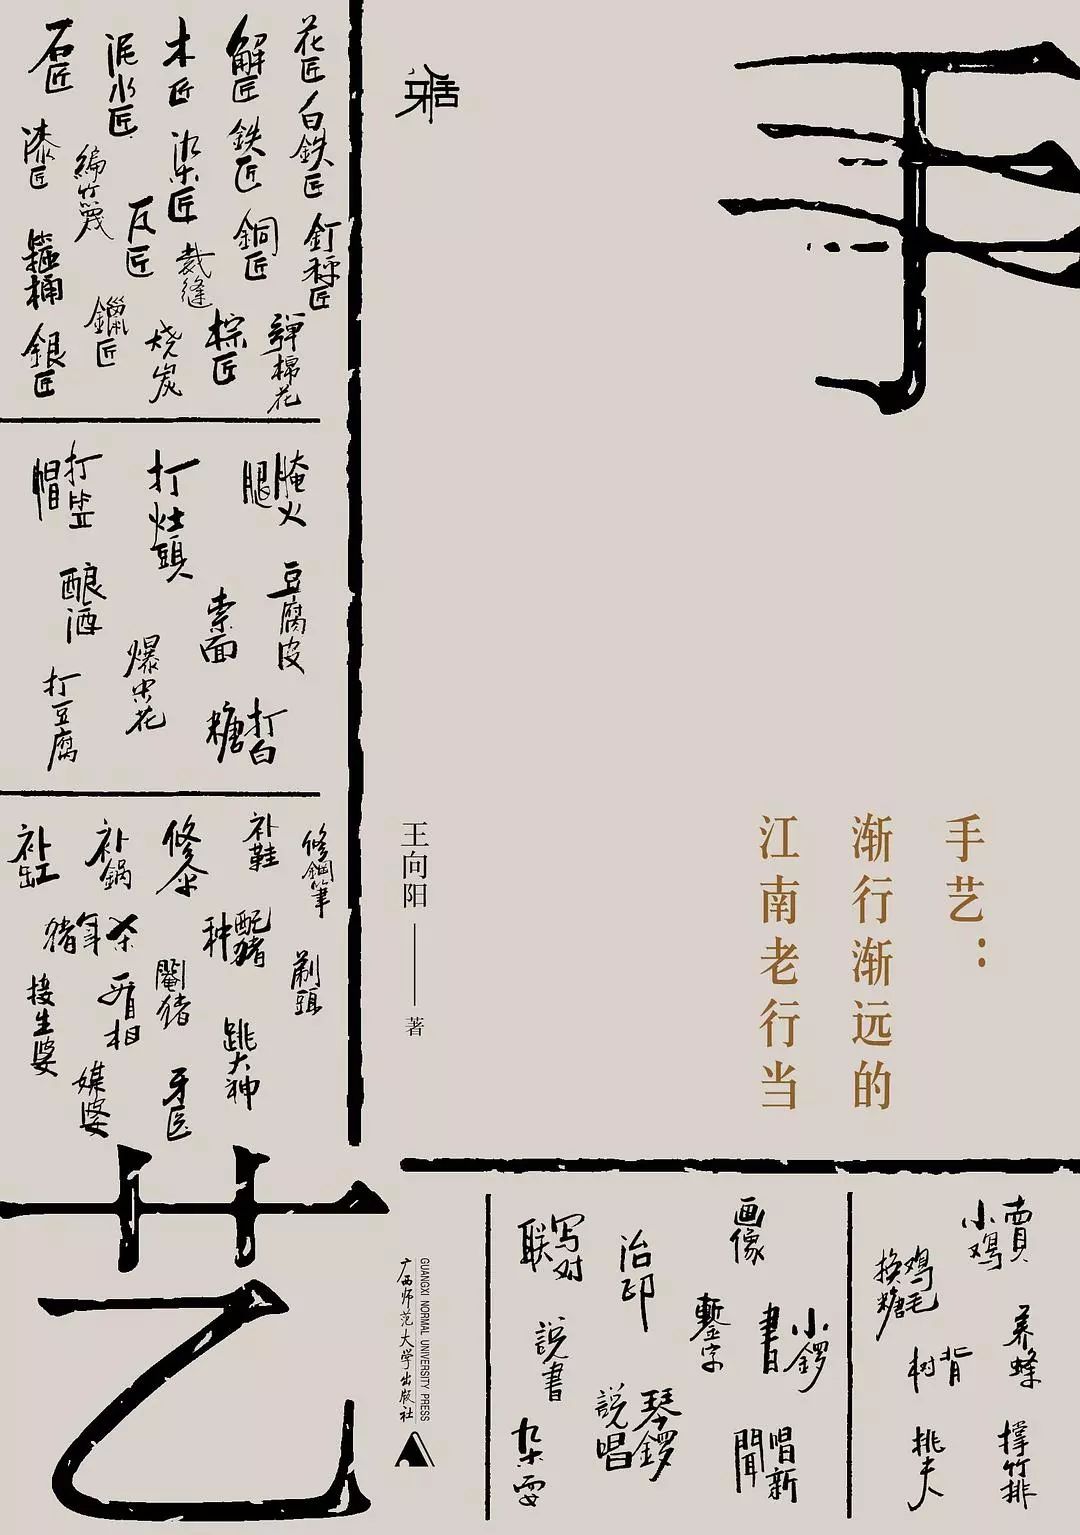 手
艺
手艺：
渐行渐远的
江南老行当
王向阳 著
花匠
白鉄匠
釘秤匠
彈棉花
解匠
鉄匠
銅匠
棕匠
木匠
染匠
裁缝
烧炭
泥水匠
瓦匠
編竹篾
鑞匠
石匠
漆匠
箍桶
銀匠
腌火腿
豆腐皮
打白糖
索面
打灶頭
爆米花
打笠帽
酿酒
打豆腐
修鋼筆
剃頭
补鞋
配猪种
跳大神
修伞
阉猪
牙医
补鍋
杀年猪
看相
媒婆
补缸
接生婆
賣小鸡
养蜂
撑竹排
鸡毛换糖
背树
挑夫
画像
小鑼書
唱新聞
鏨字
治印
琴鑼説唱
写对联
説書
杂耍
广西师范大学出版社
GUANGXI NORMAL UNIVERSITY PRESS